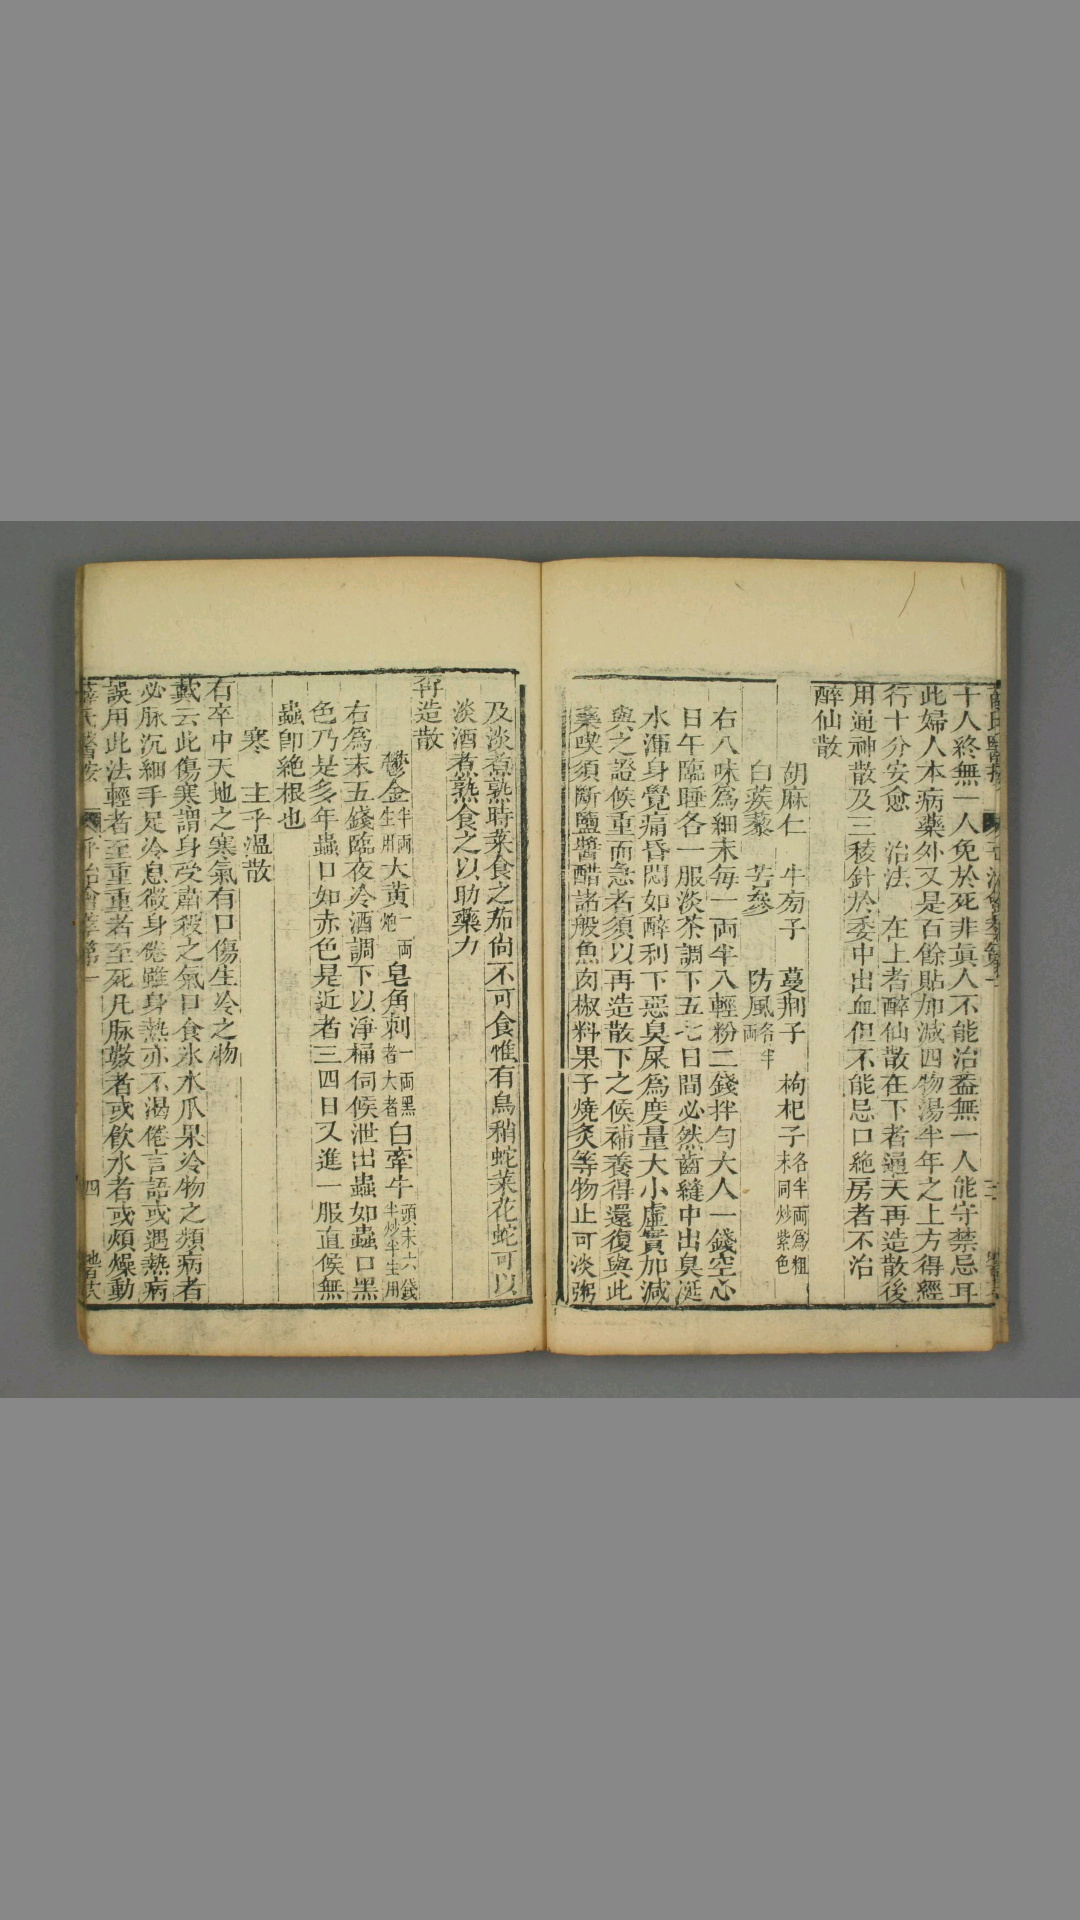 十人終無一人免於死非眞人不能治葢無一人能守禁忌耳
此婦人本病藥外又是百餘貼加減四物湯半年之上方得經
行十分安愈 治法 在上者醉仙散在下者通天再造散後
用通神散及三稜針於委中出血但不能忌口絶房者不治
醉仙散
胡麻仁 牛蒡子 蔓荆子 枸杞子各半両爲粗末同炒紫色
白蒺藜 苦參 防風各半両
右八味爲細末每一両半入輕粉二錢拌勻大人一錢空心
日午臨睡各一服淡茶調下五七日間必然齒縫中出臭涎
水渾身覺痛昏悶如醉利下惡臭屎爲度量大小虛實加減
與之證候重而急者須以再造散下之候補養得還復與此
藥喫須斷鹽醬醋諸般魚肉椒料果子燒炙等物止可淡粥
及淡煮熟時菜食之茄尙不可食惟有烏稍蛇菜花蛇可以
淡酒煮熟食之以助藥力
再造散
鬱金半両生用 大黃一両炮 皂角刺一両黑者大者 白牽牛頭末六錢半炒半生用
右爲末五錢臨夜冷酒調下以淨桶伺候泄出蟲如蟲口黑
色乃是多年蟲口如赤色是近者三四日又進一服直候無
蟲卽絶根也
寒 主乎溫散
右卒中天地之寒氣有口傷生冷之物
戴云此傷寒謂身受肅殺之氣口食氷水瓜果冷物之類病者
必脉沉細手足冷息微身倦雖身熱亦不渴倦言語或遇熱病
誤用此法輕者至重重者至死凡脉數者或飮水者或煩燥動
薛氏醫按 平治會萃第一 四